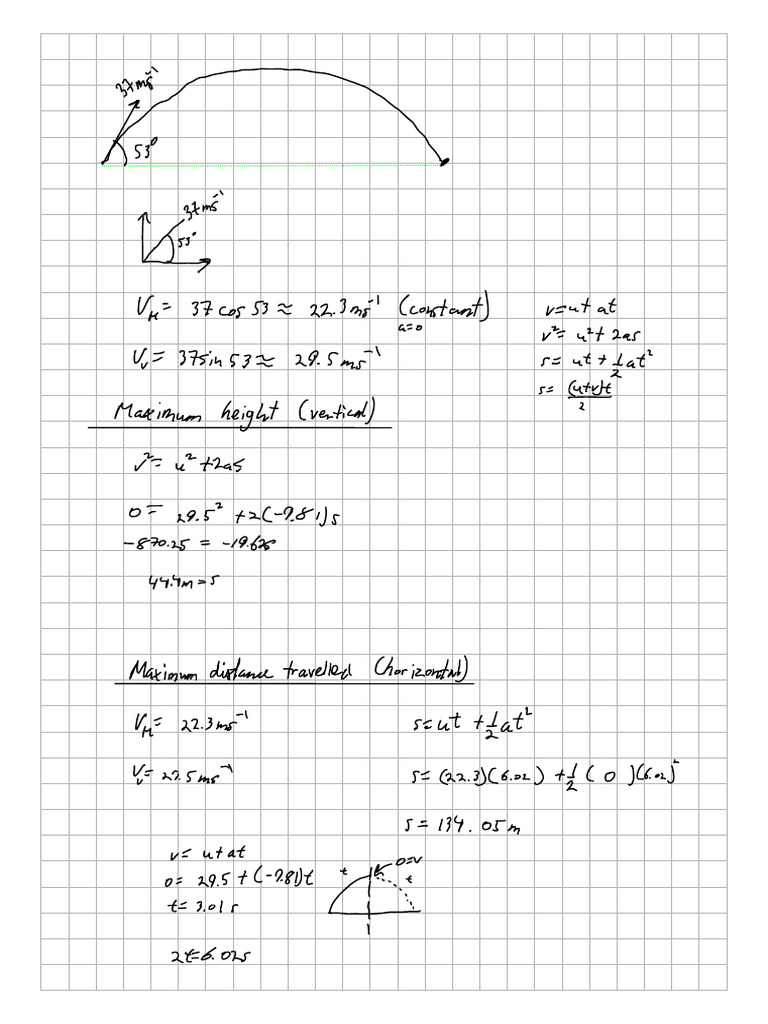 37ms⁻¹
53°
37ms⁻¹
53°
V_H = 37 cos 53 ≈ 22.3ms⁻¹ (constant)
a=0
V_v = 37sin 53 ≈ 29.5ms⁻¹
v=u+at
v²= u²+ 2as
s= ut + ½at²
s= (u+v)t/2
Maximum height (vertical)
v²= u²+2as
0= 29.5² +2(-9.81)s
-870.25 = -19.62s
44.4m=s
Maximum distance travelled (horizontal)
V_H= 22.3ms⁻¹
V_v= 29.5ms⁻¹
v= u+at
0= 29.5 + (-9.81)t
t= 3.01s
2t=6.02s
s=ut +½at²
s= (22.3)(6.02) +½(0)(6.02)²
s=134.05m
0=v
t
t